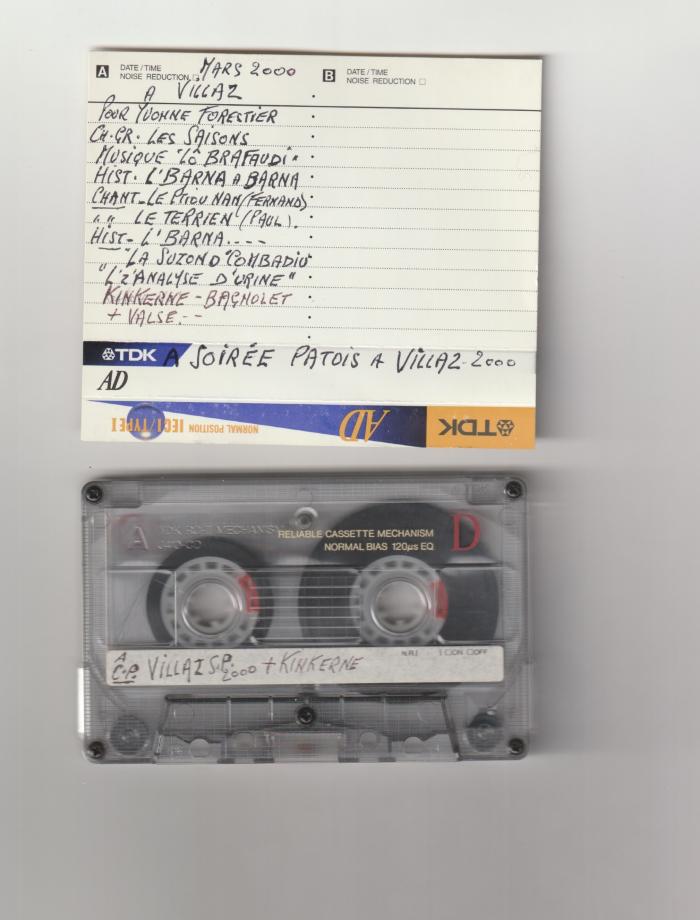 A DATE/TIME MARS 2000 B DATE/TIME
NOISE REDUCTION □ NOISE REDUCTION □
A VILLAZ
POUR YVONNE FORESTIER
CH.GR. LES SAISONS
MUSIQUE "LÔ BRAFAUDI"
HIST. L'BARNA A BARNA
CHANT - LE PTIOU NAN (FERNAND)
" " LE TERRIEN (PAUL).
HIST - L'BARNA....
"LA SUZON D'COMBADIU"
"L'Z'ANALYSE D'URINE"
KINKERNE - BAGNOLET
+ VALSE.--
TDK A SOIRÉE PATOIS A VILLAZ-2000
AD
NORMAL POSITION IECI/TYPE I
AD
TDK
A TDK MECHANISM RELIABLE CASSETTE MECHANISM D
NORMAL BIAS 120µs EQ
A N.R.I I □ON □OFF
C.P. VILLAZ S.P. 2000 + KINKERNE